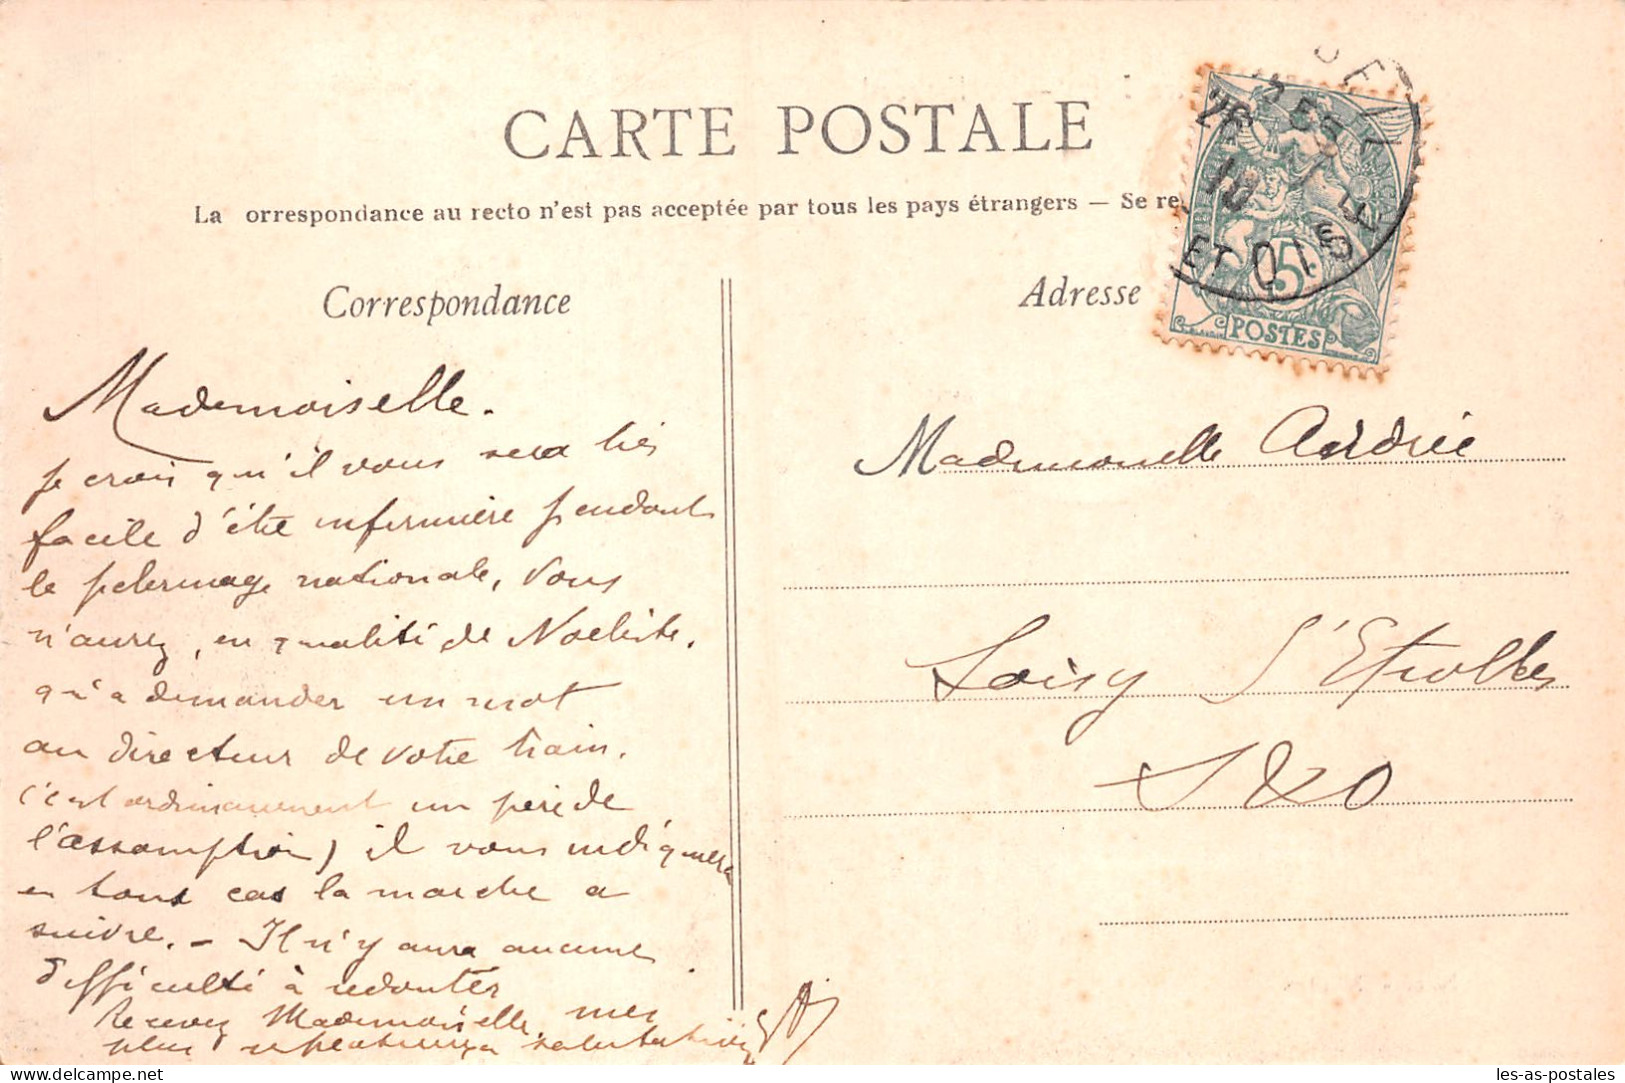 CARTE POSTALE
La orrespondance au recto n'est pas acceptée par tous les pays étrangers — Se re
Correspondance
Adresse
5
POSTES
ET OISE
Mademoiselle.
Je crois qu'il vous sera très
facile d'être infirmière pendant
le pelerinage nationale, Vous
n'aurez, en qualité de Noeliste.
qu'a demander un mot
au directeur de votre train.
(c'est ordinairement un père de
l'assomption) il vous indiquera
en tous cas la marche a
suivre. - Il n'y aura aucune
difficulté à redouter
Recevez Mademoiselle, mes
plus respectueuses salutations
Mademoiselle Andrée
Loisy S'Etiolles
S & O
les-as-postales
les-as-postales.com